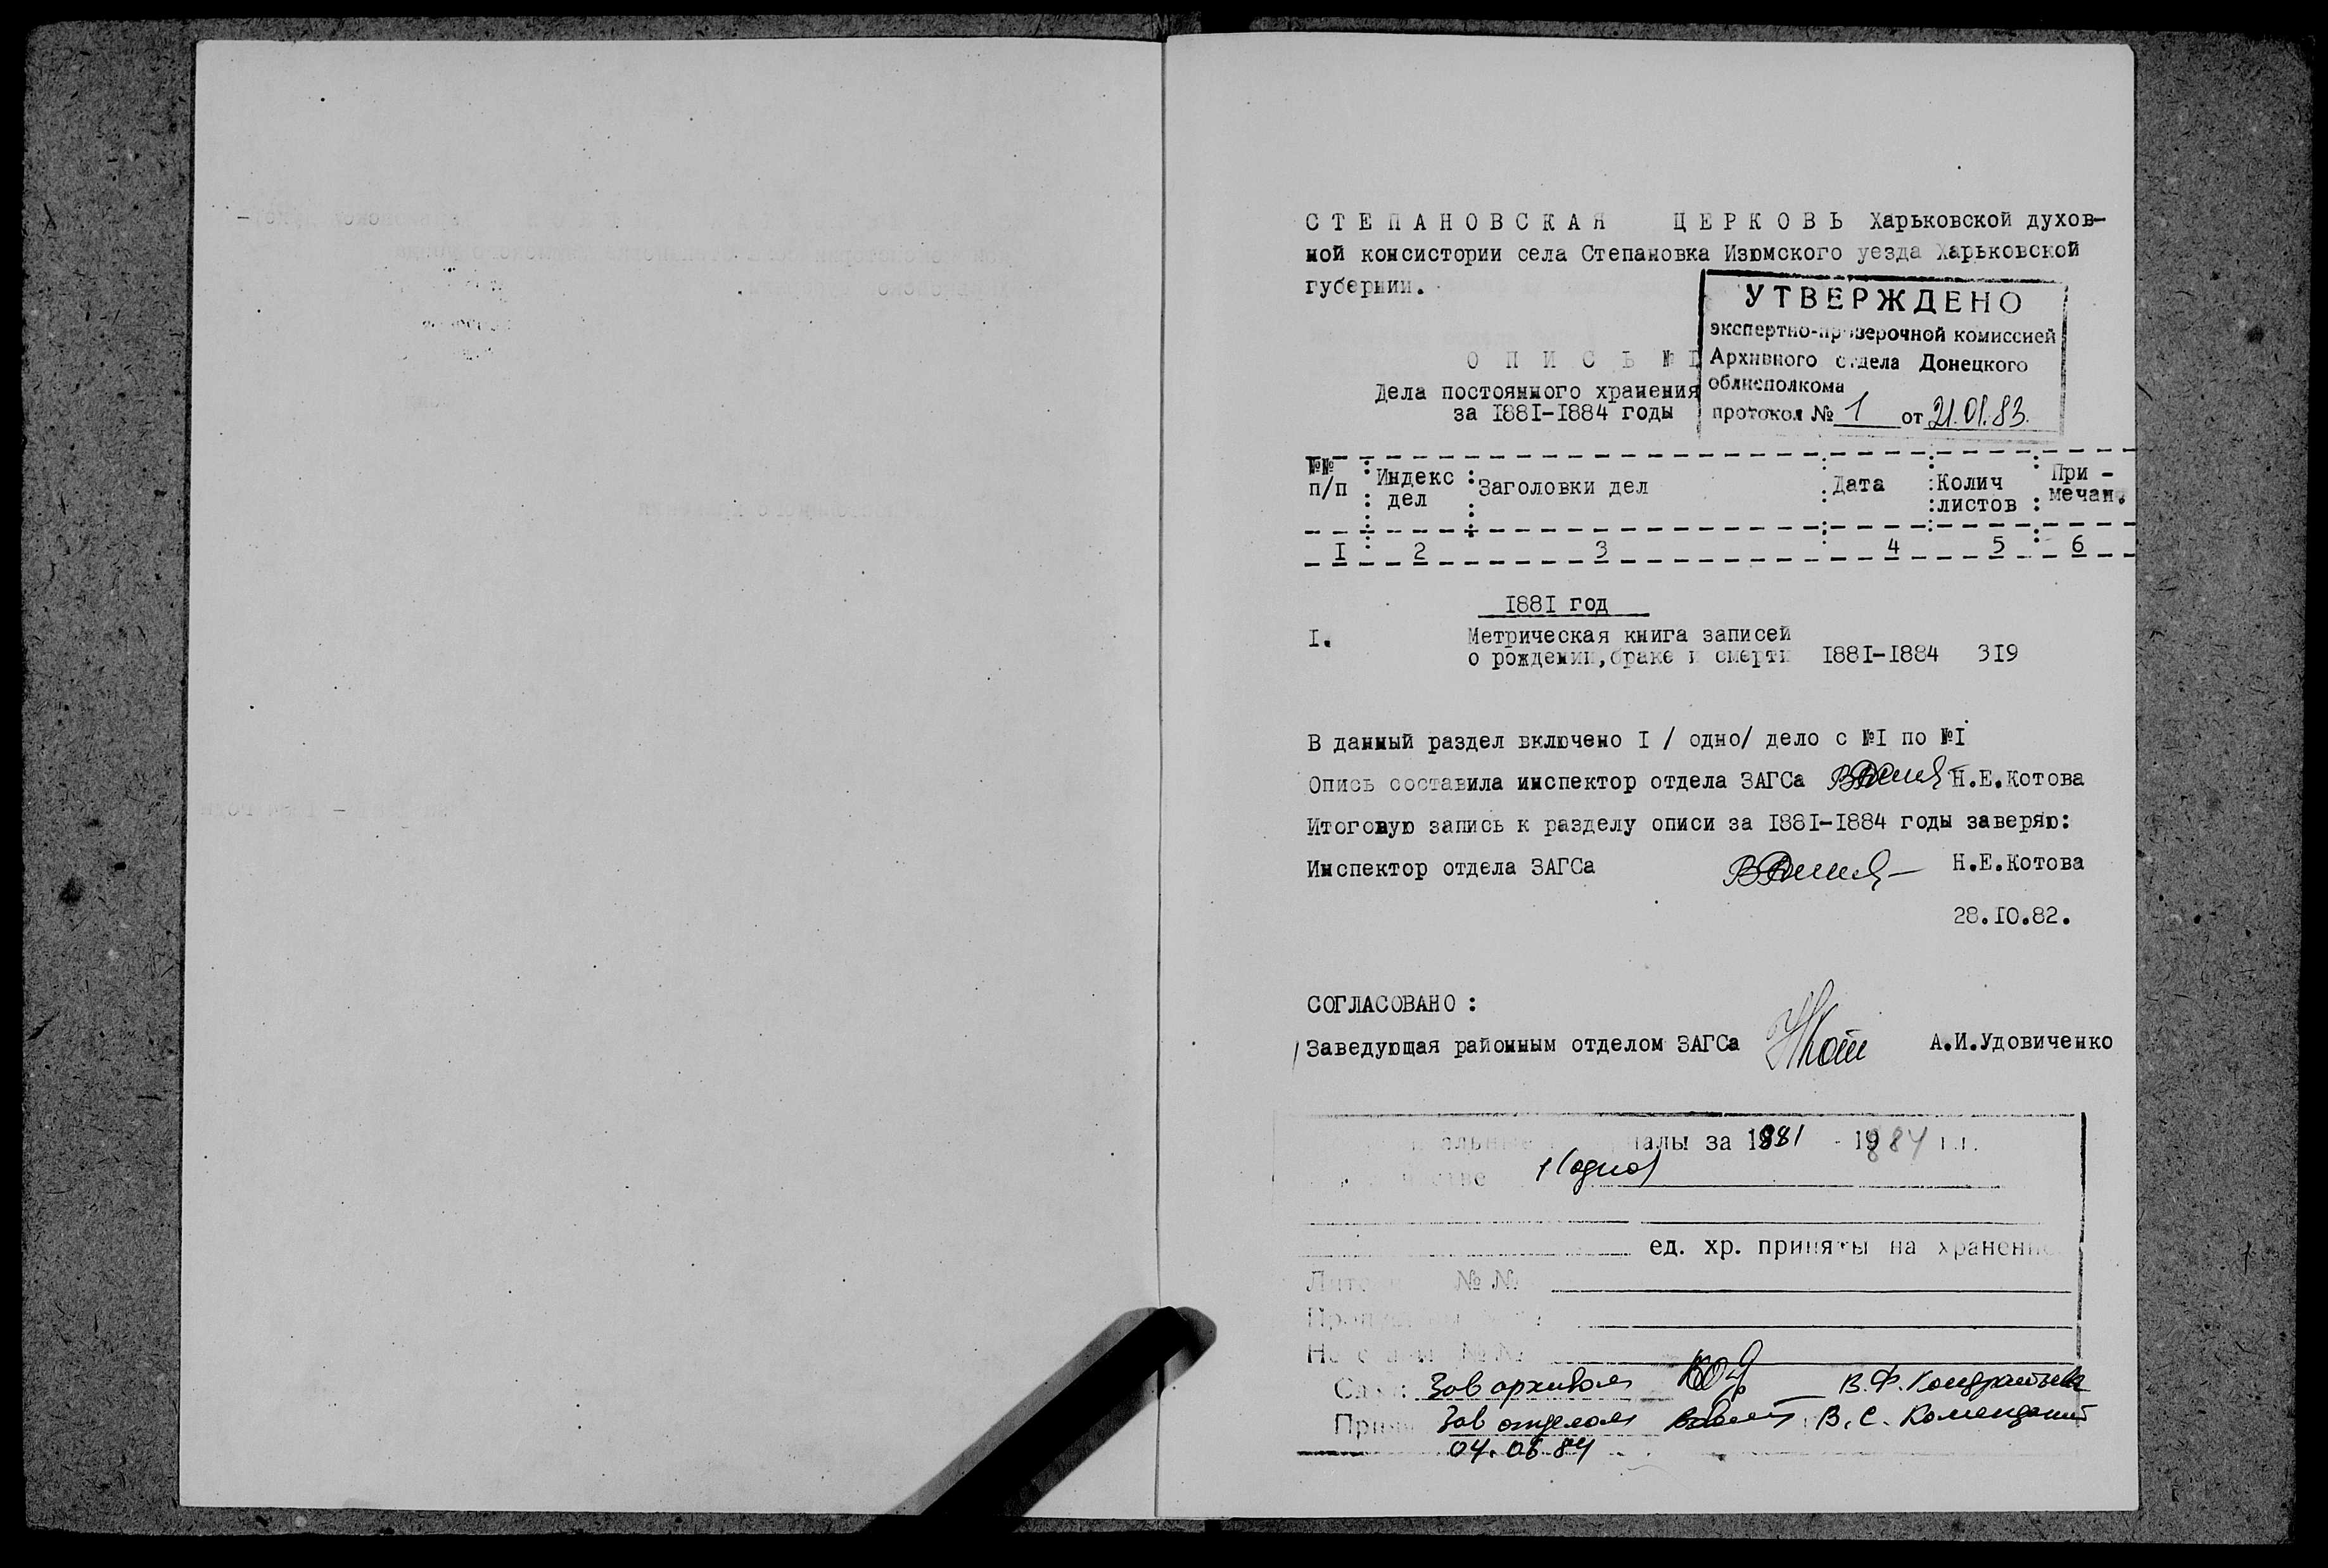 СТЕПАНОВСКАЯ ЦЕРКОВЬ Харьковской духов-
ной консистории села Степановка Изюмского уезда Харьковской
губернии.
УТВЕРЖДЕНО
экспертно-проверочной комиссией
Архивного отдела Донецкого
облисполкома
протокол № 1 от 21.01.83.
ОПИСЬ №I
Дела постоянного хранения
за I88I-I884 годы
№№ п/п Индекс дел Заголовки дел Дата Колич листов При-мечан.
I 2 3 4 5 6
I88I год
I. Метрическая книга записей
о рождении, браке и смерти I88I-I884 3I9
В данный раздел включено I / одно/ дело с №I по №I
Опись составила инспектор отдела ЗАГСа Н.Е.Котова
Итоговую запись к разделу описи за I88I-I884 годы заверяю:
Инспектор отдела ЗАГСа Н.Е.Котова
28.I0.82.
СОГЛАСОВАНО :
Заведующая районным отделом ЗАГСа А.И.Удовиченко
за 1881 - 1884 г.г.
1 (одно)
ед. хр. приняты на хранение
№ №
Зав архивом В.Ф. Кондратьева
Зав отделом В.С.
04.06.84